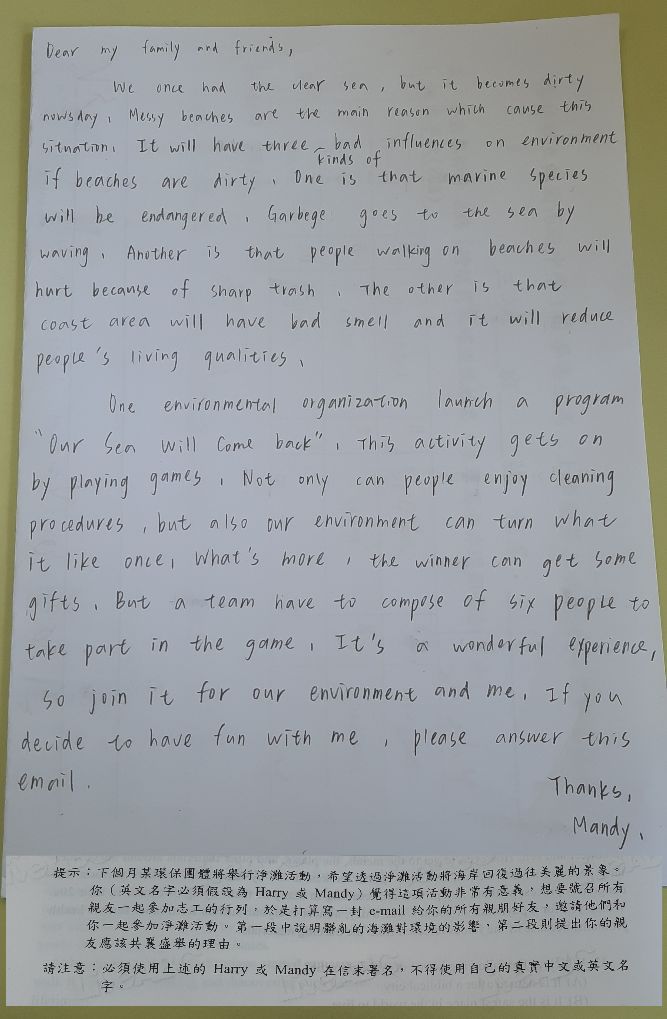 Dear my family and friends,
We once had the clear sea, but it becomes dirty
nowsday. Messy beaches are the main reason which cause this
situation. It will have three kinds of bad influences on environment
if beaches are dirty. One is that marine species
will be endangered. Garbege goes to the sea by
waving. Another is that people walking on beaches will
hurt because of sharp trash. The other is that
coast area will have bad smell and it will reduce
people's living qualities.
One environmental organization launch a program
"Our Sea Will Come back". This activity gets on
by playing games. Not only can people enjoy cleaning
procedures, but also our environment can turn what
it like once. What's more, the winner can get some
gifts. But a team have to compose of six people to
take part in the game. It's a wonderful experience,
so join it for our environment and me. If you
decide to have fun with me, please answer this
email.
Thanks,
Mandy.
提示：下個月某環保團體將舉行淨灘活動，希望透過淨灘活動將海岸回復過往美麗的景象。
你（英文名字必須假設為 Harry 或 Mandy）覺得這項活動非常有意義，想要號召所有
親友一起參加志工的行列，於是打算寫一封 e-mail 給你的所有親朋好友，邀請他們和
你一起參加淨灘活動。第一段中說明髒亂的海灘對環境的影響，第二段則提出你的親
友應該共襄盛舉的理由。
請注意：必須使用上述的 Harry 或 Mandy 在信末署名，不得使用自己的真實中文或英文名
字。